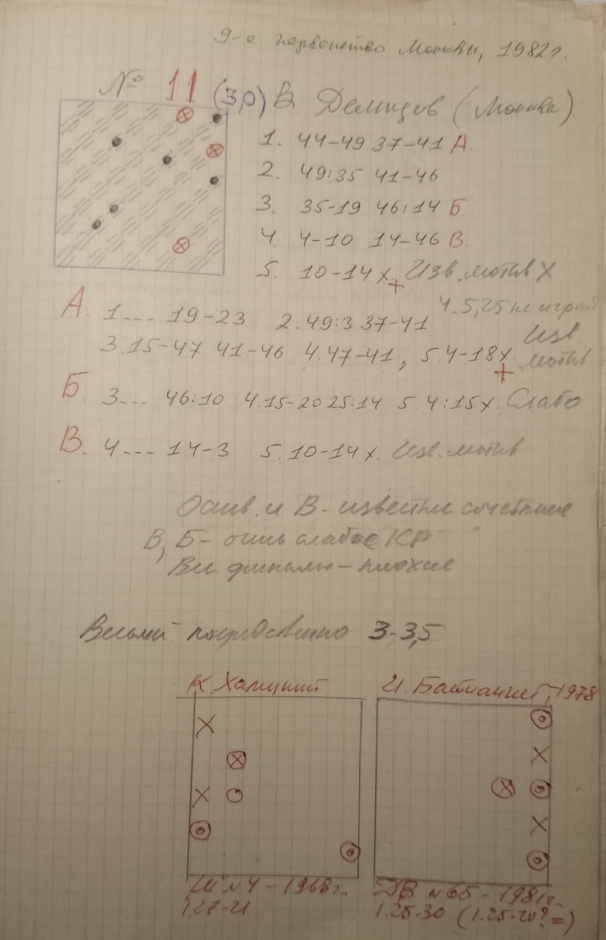 9-е первенство Москвы, 1982г.
№ 11 (3,0) В. (Москва)
1. 44-49 37-41 А.
2. 49:35 41-46
3. 35-19 46:14 Б
4. 4-10 14-46 В
5. 10-14 х Изв. мотив Х
+
4.5,25 не
А. 1... 19-23 2. 49:3 37-41
3. 15-47 41-46 4. 47-41, 5. 4-18х. Изв мотив
+
Б. 3... 46:10 4. 15-20 25:14 5. 4:15х. Слабо
В. 4... 14-3 5. 10-14 х. Изв. мотив
Основ. и В - известное сочетание
В, Б - очень слабое КР
Все финалы - плохие
Весьма посредственно 3-3,5
К. Хамуцкий
И. 1978
№4 - 1968г.
1.27-21
№65 - 1981г.
1.25-30 (1.25-20? =)